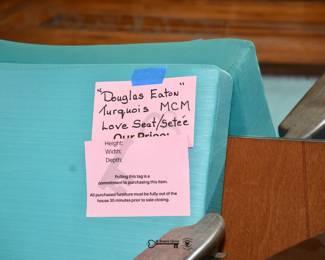 "Douglas Eaton"
Turquois MCM
Love Seat/Setee
Our Price:
Height:
Width:
Depth:
Pulling this tag is a
commitment to purchasing this item.
All purchased furniture must be fully out of the
house 30 minutes prior to sale closing.